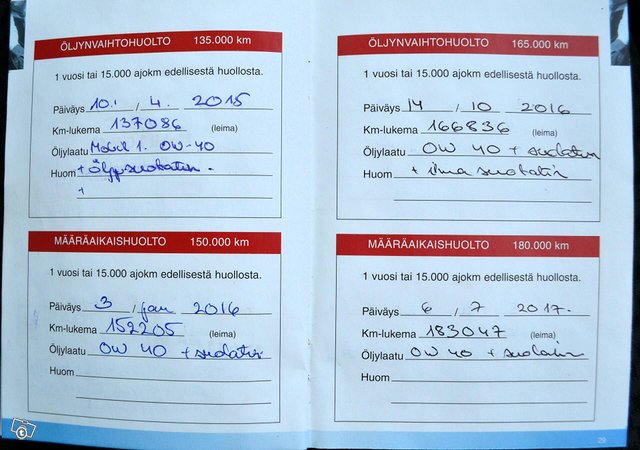 ÖLJYNVAIHTOHUOLTO 135.000 km
1 vuosi tai 15.000 ajokm edellisestä huollosta.
Päiväys 10. / 4. 2015
Km-lukema 137086 (leima)
Öljylaatu Mobil 1. 0W-40
Huom + Öljynsuodatin.
+
MÄÄRÄAIKAISHUOLTO 150.000 km
1 vuosi tai 15.000 ajokm edellisestä huollosta.
Päiväys 3 / jan 2016
Km-lukema 152205 (leima)
Öljylaatu 0W 40 + suodatin
Huom
ÖLJYNVAIHTOHUOLTO 165.000 km
1 vuosi tai 15.000 ajokm edellisestä huollosta.
Päiväys 14 / 10 2016
Km-lukema 166836 (leima)
Öljylaatu 0W 40 + suodatin
Huom + ilma suodatin
MÄÄRÄAIKAISHUOLTO 180.000 km
1 vuosi tai 15.000 ajokm edellisestä huollosta.
Päiväys 6 / 7 2017.
Km-lukema 183047 (leima)
Öljylaatu 0W 40 + suodatin
Huom
29